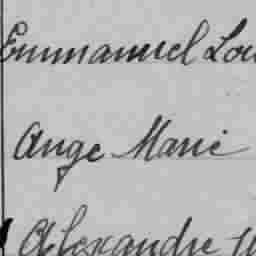 Emmanuel Lou
Ange Marie
Alexandre